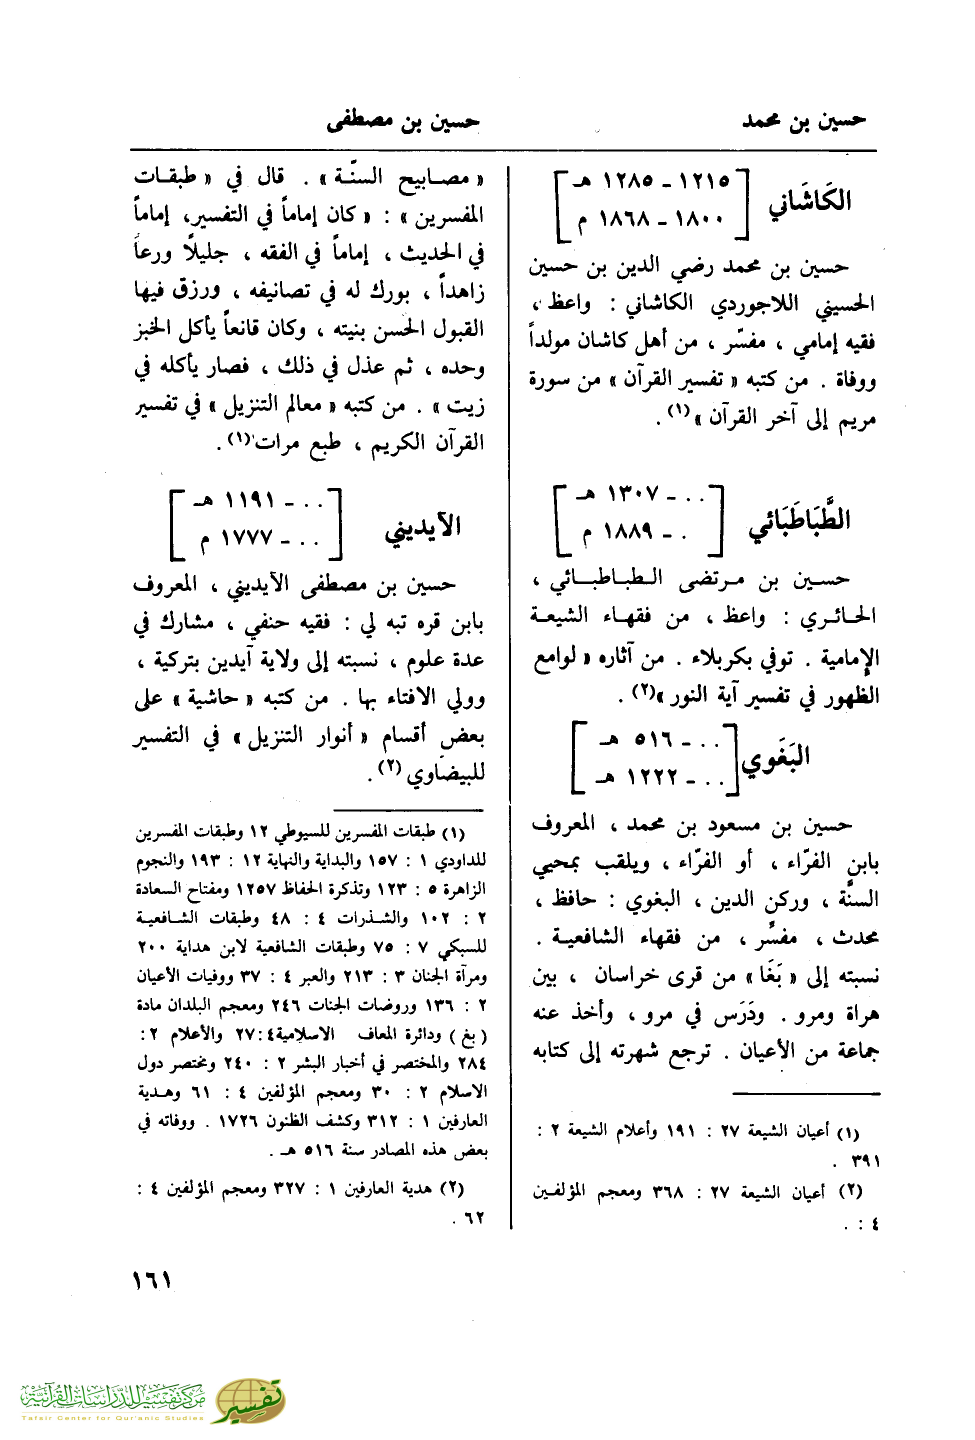 حسين بن محمد
حسين بن مصطفى
الكَاشَاني
[ ١٢١٥ - ١٢٨٥ هـ
١٨٠٠ - ١٨٦٨ م ]
حسين بن محمد رضي الدين بن حسين
الحسيني اللاجوردي الكاشاني : واعظ ،
فقيه إمامي ، مفسّر ، من أهل كاشان مولداً
ووفاة . من كتبه « تفسير القرآن » من سورة
مريم إلى آخر القرآن »(١) .
الطَّبَاطَبَائي
[ . . - ١٣٠٧ هـ
. - ١٨٨٩ م ]
حسـين بن مـرتضى الـطبـاطبـائي ،
الحائـري : واعظ ، من فقهـاء الشيعـة
الإمامية . توفي بكربلاء . من آثاره « لوامع
الظهور في تفسير آية النور »(٢) .
البَغَوي
[ . . - ٥١٦ هـ
. . - ١٢٢٢ هـ ]
حسين بن مسعود بن محمد ، المعروف
بابن الفرّاء ، أو الفرّاء ، ويلقب بمحيي
السنَّة ، وركن الدين ، البغوي : حافظ ،
محدث ، مفسِّر ، من فقهاء الشافعيـة .
نسبته إلى « بَغَا » من قرى خراسان ، بين
هراة ومرو . ودَرَس في مرو ، وأخذ عنه
جماعة من الأعيان . ترجع شهرته إلى كتابه
(١) أعيان الشيعة ٢٧ : ١٩١ وأعلام الشيعة ٢ :
٣٩١ .
(٢) أعيان الشيعة ٢٧ : ٣٦٨ ومعجم المؤلفـين
٤ : .
« مصـابيح السنّـة » . قال في « طبقـات
المفسرين » : « كان إماماً في التفسير، إماماً
في الحديث ، إماماً في الفقه ، جليلًا ورعاً
زاهداً ، بورك له في تصانيفه ، ورزق فيها
القبول الحسن بنيته ، وكان قانعاً يأكل الخبز
وحده ، ثم عذل في ذلك ، فصار يأكله في
زيت » . من كتبه « معالم التنزيل » في تفسير
القرآن الكريم ، طبع مرات(١) .
الآيديني
[ . . - ١١٩١ هـ
. . - ١٧٧٧ م ]
حسين بن مصطفى الآيديني ، المعروف
بابن قره تبه لي : فقيه حنفي ، مشارك في
عدة علوم ، نسبته إلى ولاية آيدين بتركية ،
وولي الافتاء بها . من كتبه « حاشية » على
بعض أقسام « أنوار التنزيل » في التفسير
للبيضاوي (٢) .
(١) طبقات المفسرين للسيوطي ١٢ وطبقات المفسرين
للداودي ١ : ١٥٧ والبداية والنهاية ١٢ : ١٩٣ والنجوم
الزاهرة ٥ : ١٢٣ وتذكرة الحفاظ ١٢٥٧ ومفتاح السعادة
٢ : ١٠٢ والشـذرات ٤ : ٤٨ وطبقات الشـافعيـة
للسبكي ٧ : ٧٥ وطبقات الشافعية لابن هداية ٢٠٠
ومرآة الجنان ٣ : ٢١٣ والعبر ٤ : ٣٧ ووفيات الأعيان
٢ : ١٣٦ وروضات الجنات ٢٤٦ ومعجم البلدان مادة
( بغ ) ودائرة المعاف الاسلامية٤:٢٧ والأعلام ٢ :
٢٨٤ والمختصر في أخبار البشر ٢ : ٢٤٠ ومختصر دول
الاسلام ٢ : ٣٠ ومعجم المؤلفين ٤ : ٦١ وهـدية
العارفين ١ : ٣١٢ وكشف الظنون ١٧٢٦ . ووفاته في
بعض هذه المصادر سنة ٥١٦ هـ .
(٢) هدية العارفين ١ : ٣٢٧ ومعجم المؤلفين ٤ :
٦٢ .
١٦١
مركز تفسير للدراسات القرآنية
Tafsir Center for Qur'anic Studies
تفسير